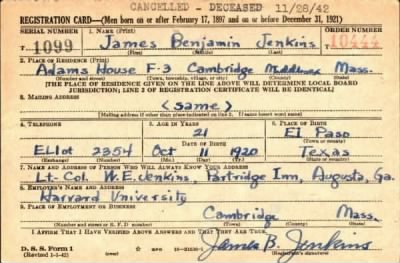 CANCELLED - DECEASED 11/28/42
REGISTRATION CARD—(Men born on or after February 17, 1897 and on or before December 31, 1921)
SERIAL NUMBER 1. NAME (Print) ORDER NUMBER
T 1099 James Benjamin Jenkins 10444
(First) (Middle) (Last)
2. PLACE OF RESIDENCE (Print)
Adams House F-3 Cambridge Middlesex Mass.
(Number and street) (Town, township, village, or city) (County) (State)
[THE PLACE OF RESIDENCE GIVEN ON THE LINE ABOVE WILL DETERMINE LOCAL BOARD
JURISDICTION; LINE 2 OF REGISTRATION CERTIFICATE WILL BE IDENTICAL]
3. MAILING ADDRESS
(same)
[Mailing address if other than place indicated on line 2. If same insert word same]
4. TELEPHONE 5. AGE IN YEARS 6. PLACE OF BIRTH
21 El Paso
DATE OF BIRTH (Town or county)
Eliot 2354 Oct 11 1920 Texas
(Exchange) (Number) (Mo.) (Day) (Yr.) (State or country)
7. NAME AND ADDRESS OF PERSON WHO WILL ALWAYS KNOW YOUR ADDRESS
Lt-Col. W.E. Jenkins, Partridge Inn, Augusta, Ga.
8. EMPLOYER'S NAME AND ADDRESS
Harvard University
9. PLACE OF EMPLOYMENT OR BUSINESS
Cambridge Mass.
(Number and street or R. F. D. number) (Town) (County) (State)
I AFFIRM THAT I HAVE VERIFIED ABOVE ANSWERS AND THAT THEY ARE TRUE.
D. S. S. Form 1
(Revised 1-1-42) (over) James B. Jenkins